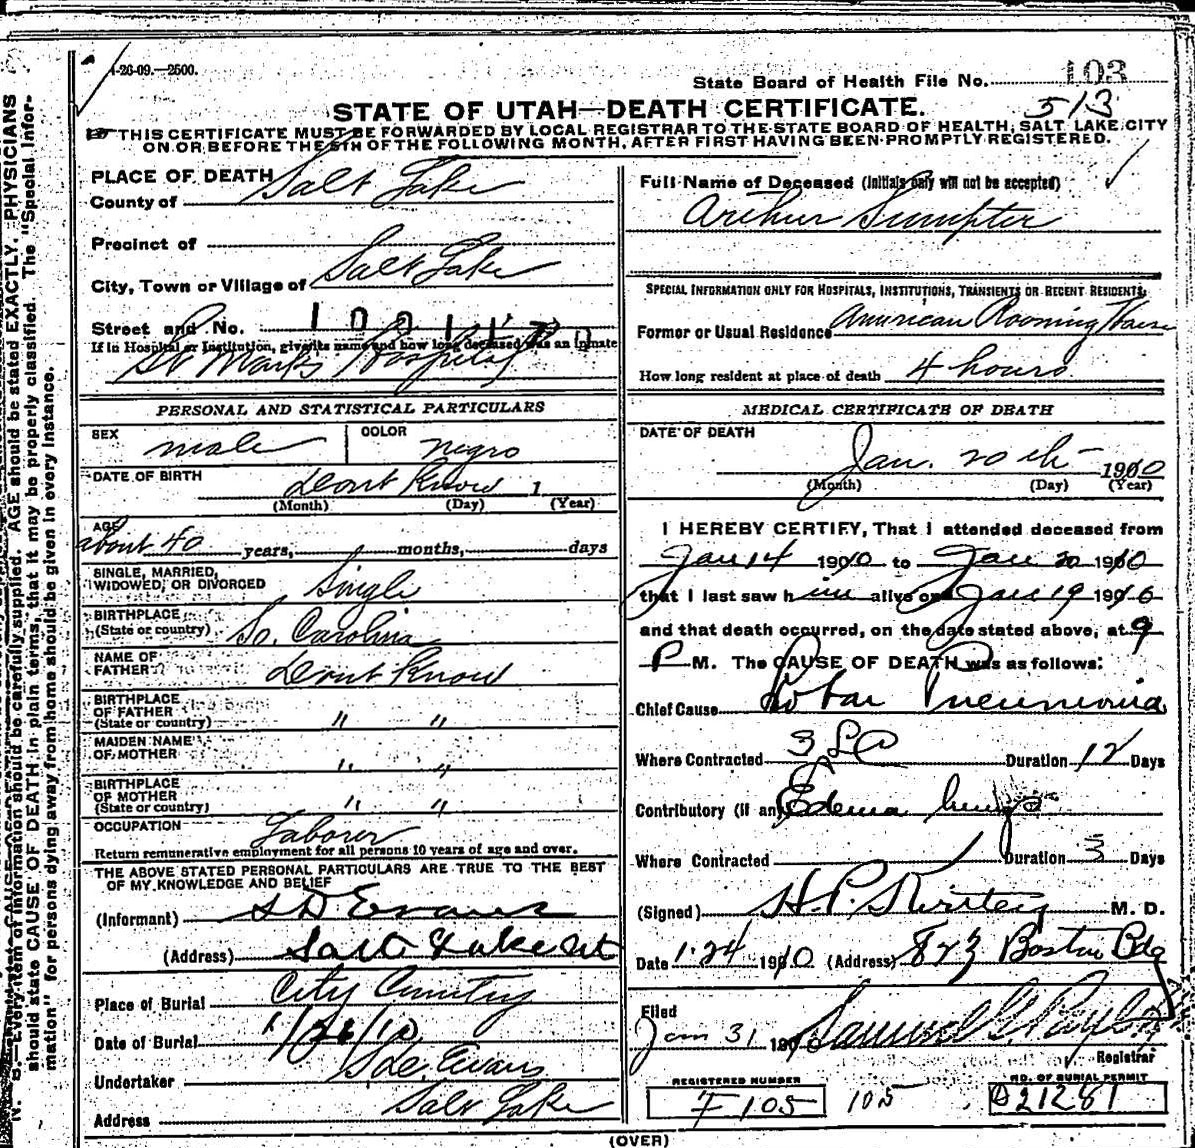 4-26-09.—2500.
State Board of Health File No. 103
513
STATE OF UTAH—DEATH CERTIFICATE.
THIS CERTIFICATE MUST BE FORWARDED BY LOCAL REGISTRAR TO THE STATE BOARD OF HEALTH, SALT LAKE CITY
ON OR BEFORE THE 5TH OF THE FOLLOWING MONTH, AFTER FIRST HAVING BEEN PROMPTLY REGISTERED.
PLACE OF DEATH
County of Salt Lake
Precinct of
City, Town or Village of Salt Lake
Street and No.
If in Hospital or Institution, give its name and how long deceased was an Inmate
St Mark's Hospital
Full Name of Deceased (Initials only will not be accepted)
Arthur Sumpter
SPECIAL INFORMATION ONLY FOR HOSPITALS, INSTITUTIONS, TRANSIENTS OR RECENT RESIDENTS.
Former or Usual Residence American Rooming House
How long resident at place of death 4 hours
PERSONAL AND STATISTICAL PARTICULARS
SEX male COLOR negro
DATE OF BIRTH Dont Know 1
(Month) (Day) (Year)
AGE about 40 years, months, days
SINGLE, MARRIED,
WIDOWED, OR DIVORCED Single
BIRTHPLACE
(State or country) So. Carolina
NAME OF
FATHER Dont Know
BIRTHPLACE
OF FATHER
(State or country) " "
MAIDEN NAME
OF MOTHER " "
BIRTHPLACE
OF MOTHER
(State or country) " "
OCCUPATION Laborer
Return remunerative employment for all persons 10 years of age and over.
THE ABOVE STATED PERSONAL PARTICULARS ARE TRUE TO THE BEST
OF MY KNOWLEDGE AND BELIEF
(Informant) S D Evans
(Address) Salt Lake Ut
Place of Burial City Cemetery
Date of Burial 1/26/10
Undertaker S.D. Evans
Address Salt Lake
MEDICAL CERTIFICATE OF DEATH
DATE OF DEATH
Jan. 20th 1910
(Month) (Day) (Year)
I HEREBY CERTIFY, That I attended deceased from
Jan 14 1910 to Jan 20 1910
that I last saw him alive on Jan 19 1910
and that death occurred, on the date stated above, at 9
P M. The CAUSE OF DEATH was as follows:
Chief Cause Lobar Pneumonia
Where Contracted S L C Duration 12 Days
Contributory (if any) Edema lungs
Where Contracted Duration 3 Days
(Signed) H. P. M. D.
Date 1-24 1910 (Address) 823 Boston Bdg
Filed
Jan 31 190 Samuel G. Paul
Registrar
REGISTERED NUMBER
F 105 105
NO. OF BURIAL PERMIT
A21281
(OVER)
N. B.—Every item of information should be carefully supplied. AGE should be stated EXACTLY. PHYSICIANS
should state CAUSE OF DEATH in plain terms, that it may be properly classified. The "Special Infor-
mation" for persons dying away from home should be given in every instance.